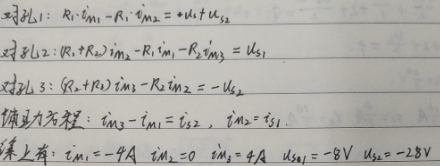 对孔1: R₁·iₘ₁-R₁·iₘ₂=+u₅+uₛ₂
对孔2:(R₁+R₂)iₘ₂-R₁iₘ₁-R₂iₘ₃=uₛ₁
对孔3:(R₂+R₃)iₘ₃-R₂iₘ₂=-uₛ₂
辅助方程: iₘ₃-iₘ₁=iₛ₂, iₘ₂=iₛ₁.
上有: iₘ₁=-4A iₘ₂=0 iₘ₃=4A =-8V uₛ₂=-28V